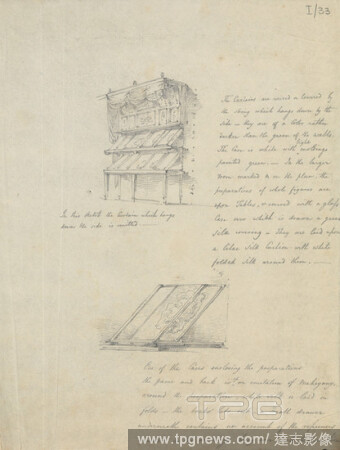 I/33
The Curtains are raised or lowered by
the string which hangs down by the
side — they are of a
darker than the green of the walls.
The Case is white with light mouldings
painted green. — In the larger
room marked on the plan, the
preparations of whole figures are
upon Tables, & covered with a glass
case over which is drawn a green
silk covering — they are laid upon
a silk Cushion with white
folded silk around them. —
In this sketch the Curtain which hangs
over the is omitted —
One of the Cases enclosing the preparations
the frame and back in imitation of Mahogany
round the a band in
gold — the small drawer
underneath encloses an account of the
TPG
www.tpgnews.com / 達志影像